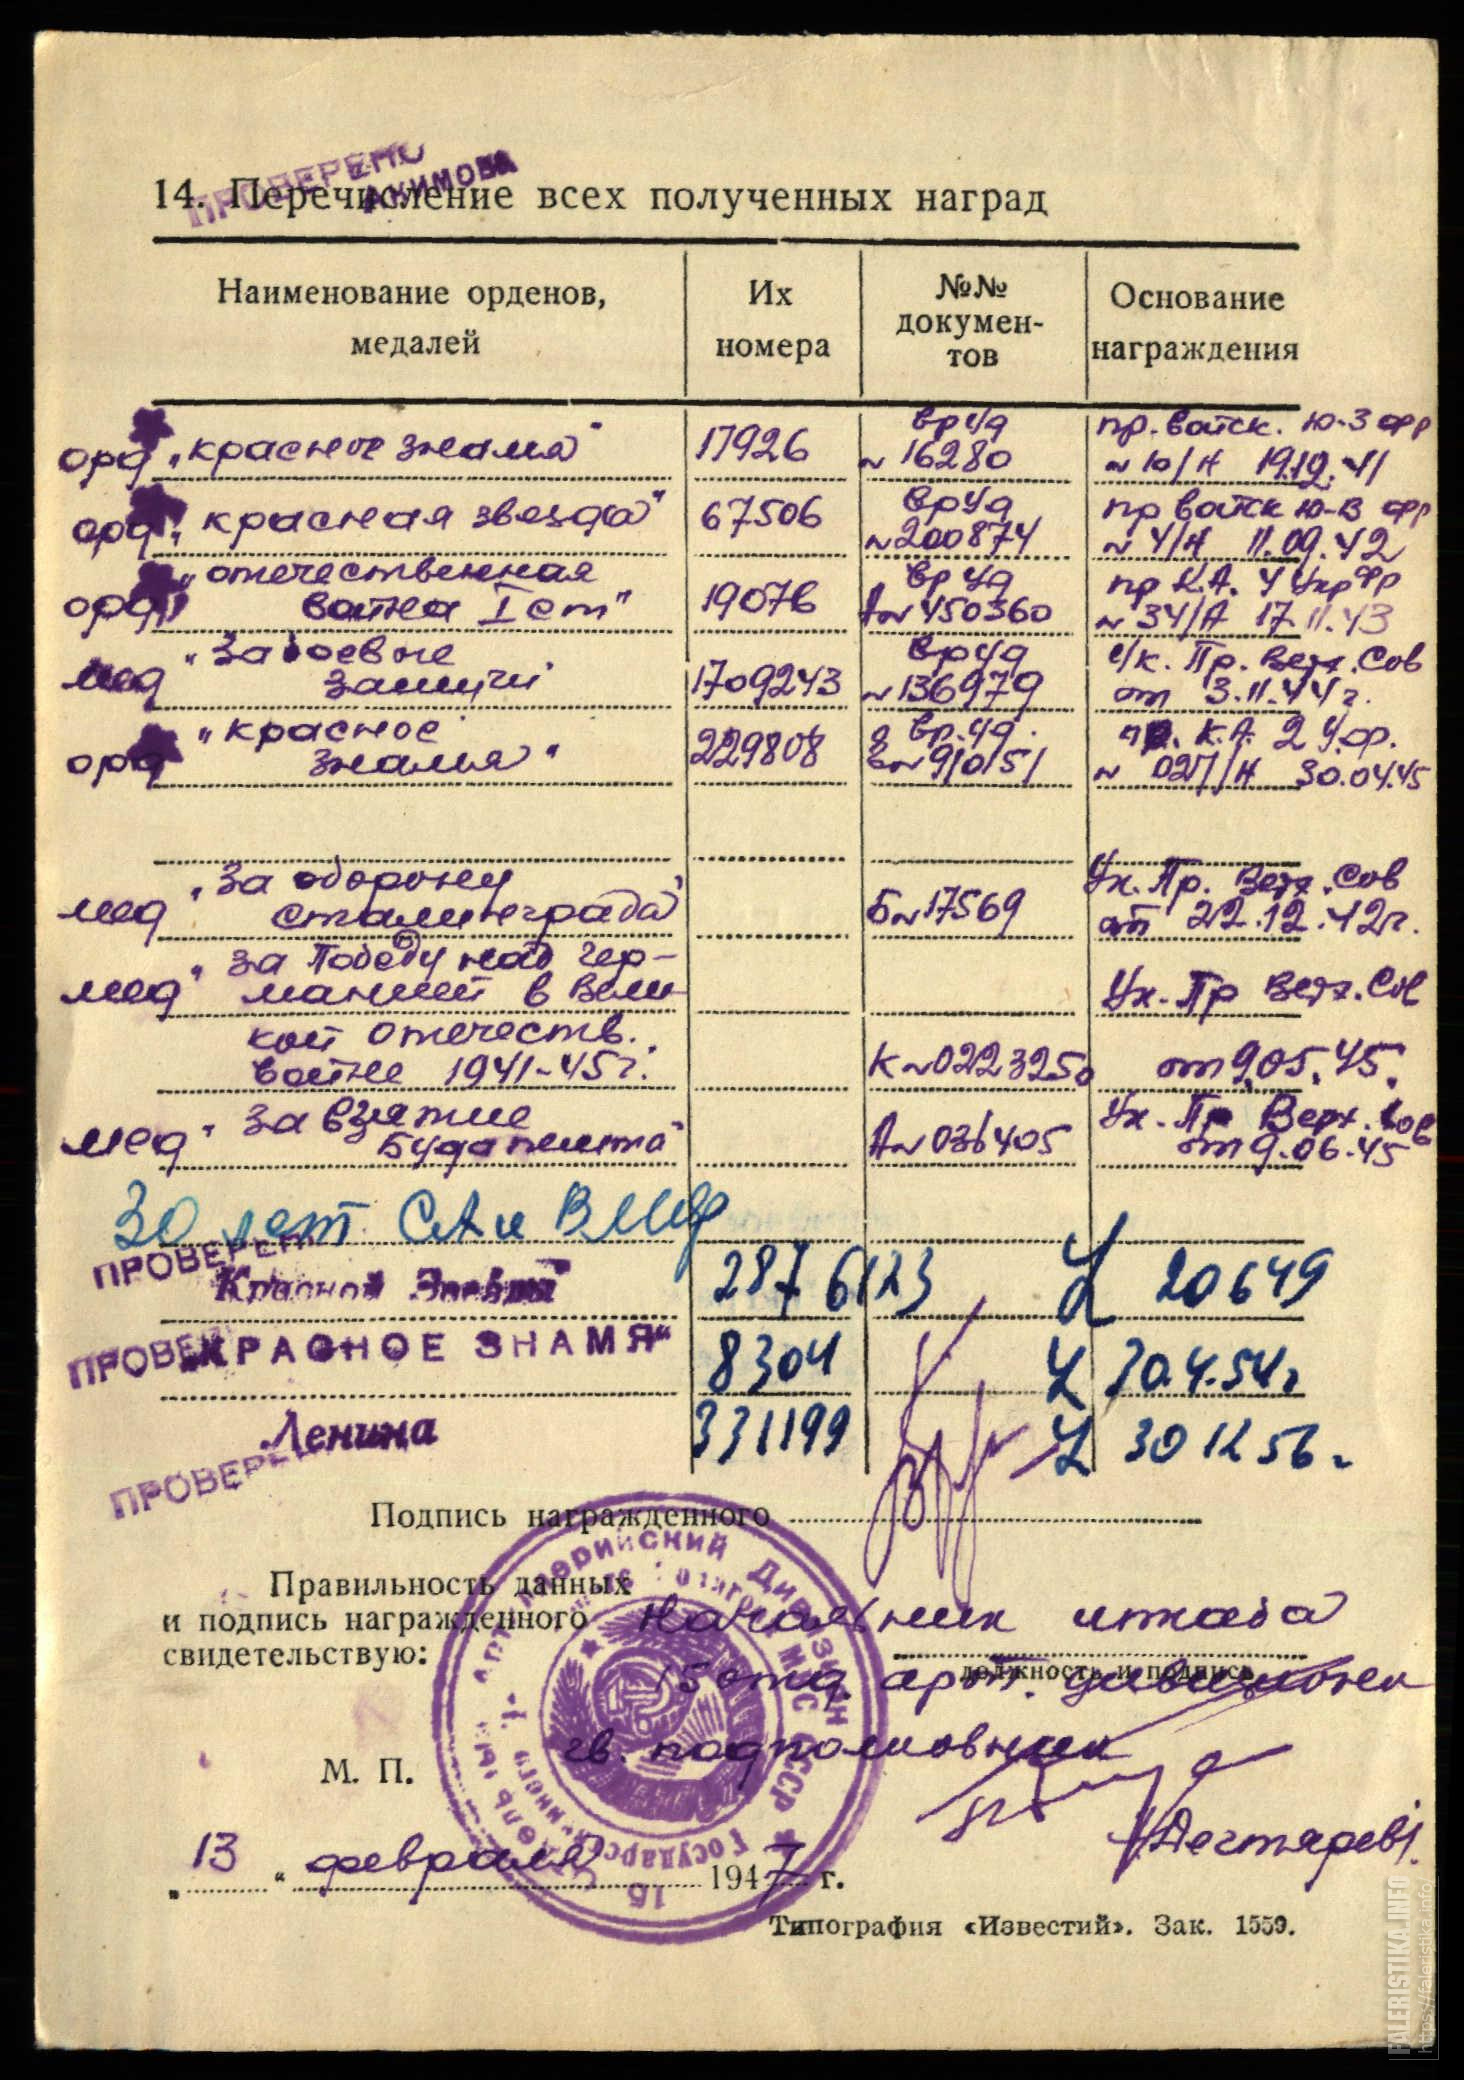 ПРОВЕРЕНО
АКИМОВА
14. Перечисление всех полученных наград
Наименование орденов, медалей
Их номера
№№ докумен-тов
Основание награждения
орд „красное знамя" 17926 вр уд № 16280 пр. войск. Ю-З фр № 10/н 19.12.41
орд „красная звезда" 67506 вр уд № 200874 пр войск Ю-В фр № 4/н 11.09.42
орд „отечественная война I ст" 19076 вр уд А № 450360 пр К.А. 4 Укр Фр № 34/н 17.11.43
мед „За боевые заслуги 1709243 вр уд № 136979 с/к. Пр. Верх. Сов от 3.11.44 г.
орд „красное знамя" 229808 вр. уд. № 910151 пр. К.А. 2 У.фр. № 027/н 30.04.45
мед „за оборону сталинграда" Б № 17569 Ук. Пр. Верх. Сов от 22.12.42 г.
мед „за Победу над Гер-
манией в Вели- Ук. Пр Верх. Сов
кой отечеств.
войне 1941-45 г. К № 0223250 от 9.05.45.
мед „за взятие Будапешта" А № 036405 Ук. Пр Верх. Сов от 9.06.45
30 лет СА и ВМФ
ПРОВЕРЕН
Красной Звезды 2876123 20649
ПРОВЕ
„КРАСНОЕ ЗНАМЯ" 8304 30.4.54 г
Ленина 331199 30 12 56 г
ПРОВЕРЕ
Подпись награжденного
Правильность данных
и подпись награжденного
свидетельствую:
Начальник штаба
должность и подпись
15 отд. арт. дивизиона
гв. подполковник
М. П.
Дегтярев
„13" февраля 1947 г.
Типография «Известий». Зак. 1559.
FALERISTIKA.INFO
https://faleristika.info